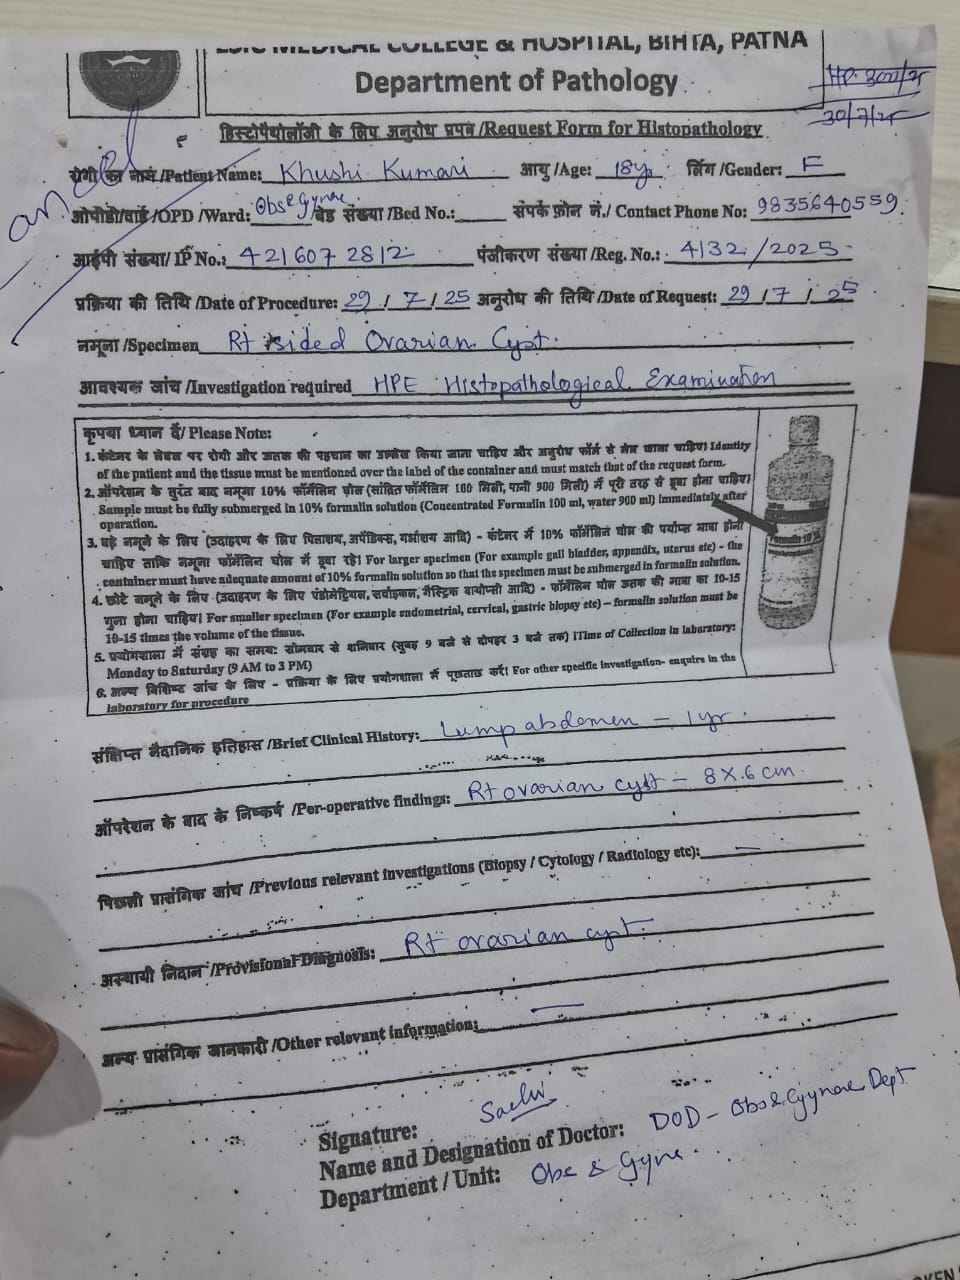 MEDICAL COLLEGE & HOSPITAL, BIHTA, PATNA
Department of Pathology
30/7/25
हिस्टोपैथोलॉजी के लिए अनुरोध प्रपत्र /Request Form for Histopathology
रोगी का नाम /Patient Name: Khushi Kumari आयु /Age: 18y लिंग /Gender: F
ओपीडी/वार्ड /OPD /Ward: Obs&Gynae बेड संख्या /Bed No.: संपर्क फ़ोन नं./ Contact Phone No: 9835640559
आईपी संख्या/ IP No.: 4216072812 पंजीकरण संख्या /Reg. No.: 4132/2025
प्रक्रिया की तिथि /Date of Procedure: 29/7/25 अनुरोध की तिथि /Date of Request: 29/7/25
नमूना /Specimen Rt sided Ovarian Cyst.
आवश्यक जांच /Investigation required HPE Histopathological Examination
कृपया ध्यान दें/ Please Note:
1. कंटेनर के लेबल पर रोगी और ऊतक की पहचान का उल्लेख किया जाना चाहिए और अनुरोध फॉर्म से मेल खाना चाहिए। Identity
of the patient and the tissue must be mentioned over the label of the container and must match that of the request form.
2. ऑपरेशन के तुरंत बाद नमूना 10% फॉर्मेलिन घोल (सांद्रित फॉर्मेलिन 100 मिली, पानी 900 मिली) में पूरी तरह से डूबा होना चाहिए।
Sample must be fully submerged in 10% formalin solution (Concentrated Formalin 100 ml, water 900 ml) immediately after
operation.
3. बड़े नमूने के लिए (उदाहरण के लिए पित्ताशय, अपेंडिक्स, गर्भाशय आदि) - कंटेनर में 10% फॉर्मेलिन घोल की पर्याप्त मात्रा होनी
चाहिए ताकि नमूना फॉर्मेलिन घोल में डूबा रहे। For larger specimen (For example gall bladder, appendix, uterus etc) - the
container must have adequate amount of 10% formalin solution so that the specimen must be submerged in formalin solution.
4. छोटे नमूने के लिए (उदाहरण के लिए एंडोमेट्रियल, सर्वाइकल, गैस्ट्रिक बायोप्सी आदि) - फॉर्मेलिन घोल ऊतक की मात्रा का 10-15
गुना होना चाहिए। For smaller specimen (For example endometrial, cervical, gastric biopsy etc) – formalin solution must be
10-15 times the volume of the tissue.
5. प्रयोगशाला में संग्रह का समय: सोमवार से शनिवार (सुबह 9 बजे से दोपहर 3 बजे तक) |Time of Collection in laboratory:
Monday to Saturday (9 AM to 3 PM)
6. अन्य विशिष्ट जांच के लिए - प्रक्रिया के लिए प्रयोगशाला में पूछताछ करें। For other specific investigation- enquire in the
laboratory for procedure
Formalin 10%
संक्षिप्त नैदानिक इतिहास /Brief Clinical History: Lump abdomen – 1yr.
ऑपरेशन के बाद के निष्कर्ष /Per-operative findings: Rt ovarian cyst – 8 x 6 cm.
पिछली प्रासंगिक जांच /Previous relevant investigations (Biopsy / Cytology / Radiology etc): —
अस्थायी निदान /Provisional Diagnosis: Rt ovarian cyst.
अन्य प्रासंगिक जानकारी /Other relevant information: —
Signature:
Name and Designation of Doctor: DOD – Obs&Gynae Dept
Department / Unit: Obs & Gyne.